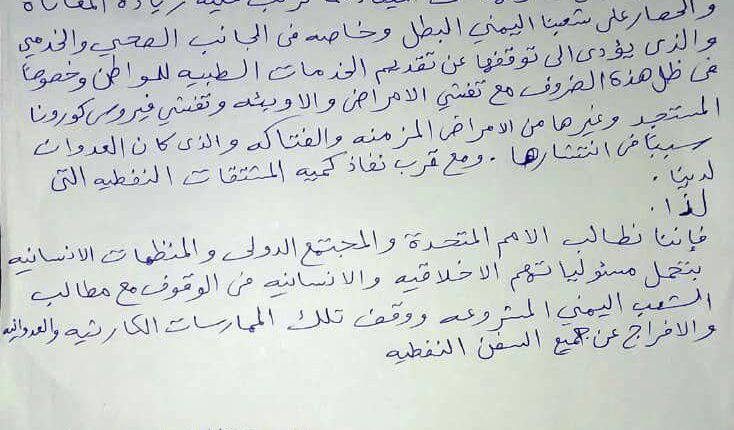 زيادة المعاناة
والحصار على شعبنا اليمني البطل وخاصه في الجانب الصحي والخدمي
والذي يؤدى الى توقفها عن تقديم الخدمات الطبيه للمواطن وخصوصاً
في ظل هذة الضروف مع تفشي الامراض والاوبئه وتفشي فيروس كورونا
المستجد وغيرها من الامراض المزمنه والفتاكه والذى كان العدوان
سبباً في انتشارها . ومع قرب نفاذ كميه المشتقات النفطيه التي
لدينا .
لذا .
فإننا نطالب الامم المتحدة والمجتمع الدولى والمنظمات الانسانيه
بتحمل مسئولياتهم الاخلاقيه والانسانيه في الوقوف مع مطالب
الشعب اليمني المشروعه ووقف تلك الممارسات الكارثيه والعدوانيه
والافراج عن جميع السفن النفطيه